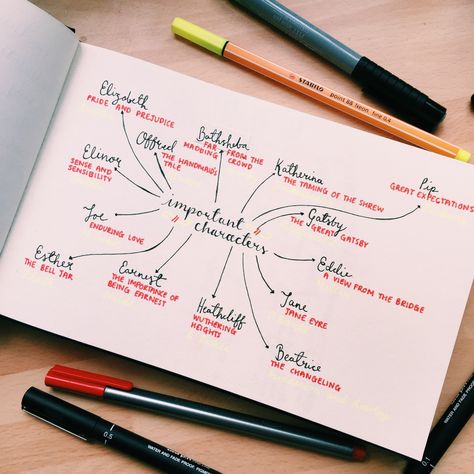 Elizabeth
PRIDE AND PREJUDICE
Offred
THE HANDMAID'S
TALE
Bathsheba
FAR FROM THE
MADDING CROWD
Katherina
THE TAMING OF THE SHREW
Pip
GREAT EXPECTATIONS
Elinor
SENSE AND
SENSIBILITY
Gatsby
THE GREAT GATSBY
Joe
ENDURING LOVE
"important
characters"
Eddie
A VIEW FROM THE BRIDGE
Esther
THE BELL JAR
Earnest
THE IMPORTANCE OF
BEING EARNEST
Heathcliff
WUTHERING
HEIGHTS
Jane
JANE EYRE
Beatrice
THE CHANGELING
STABILO point 88 Neon fine 0,4
0.5
WATER AND FADE PROOF, PIGMENT
0.1
WATER AND FADE